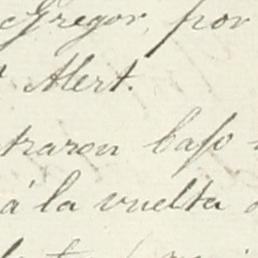 Gregor, por
Alert.
traron bajo
á la vuelta